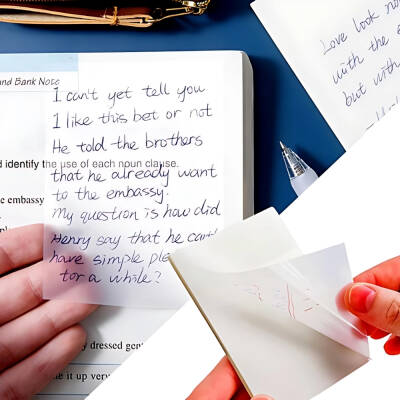 and Bank Note
I can't yet tell you
I like this bet or not
He told the brothers
d identify the use of each noun clause.
that he already want
e embassy
to the embassy.
My question is how did
Henry say that he can't
have simple ple
for a while?
dressed gen
e it up very
Love look no
with the e
but with